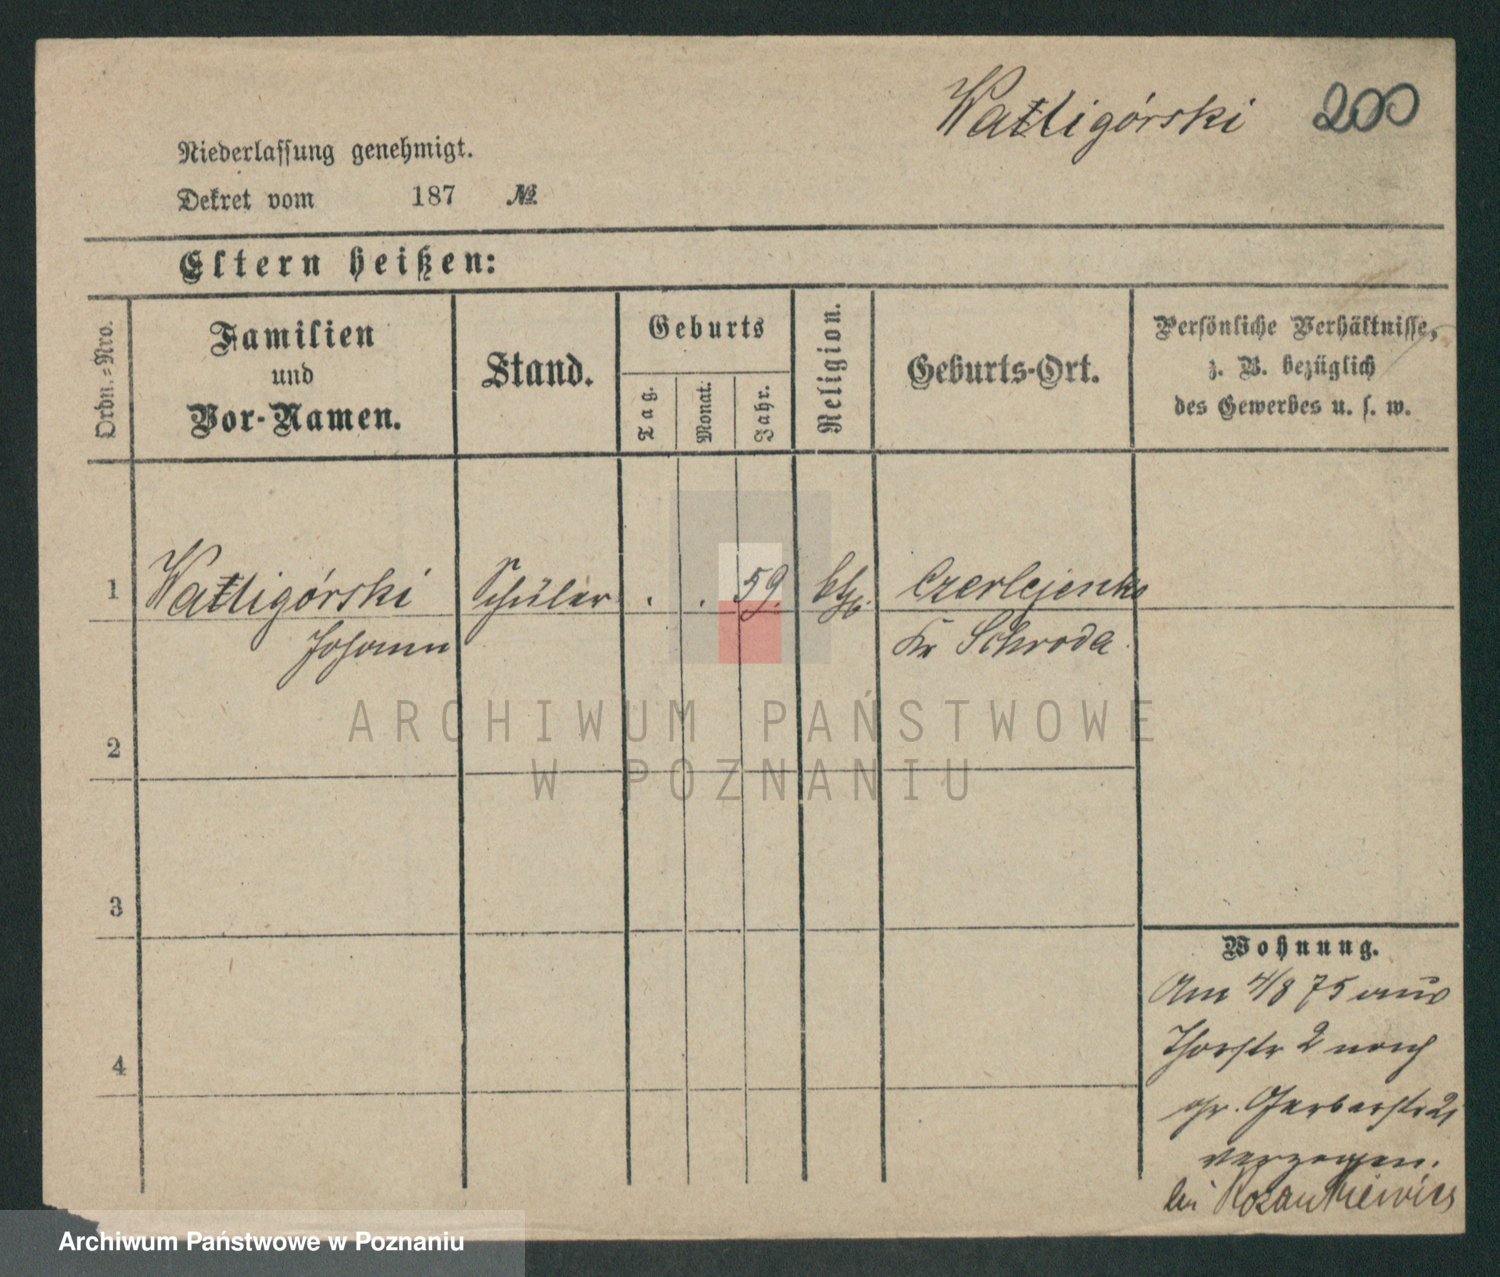 Watligórski 200
Niederlassung genehmigt.
Dekret vom 187 №
Eltern heißen:
Ordn.-Nro.
Familien
und
Vor-Namen.
Stand.
Geburts
Tag.
Monat.
Jahr.
Religion.
Geburts-Ort.
Persönliche Verhältnisse,
z. B. bezüglich
des Gewerbes u. s. w.
1 Watligórski Schüler . . 59. kth. Czerlejenko
Johann Kr Schroda.
2
3
4
Wohnung.
Am 4/8 75 aus
Thorstr 2 nach
gr. Gerberstr 21
verzogen.
bei
ARCHIWUM PAŃSTWOWE
W POZNANIU
Archiwum Państwowe w Poznaniu